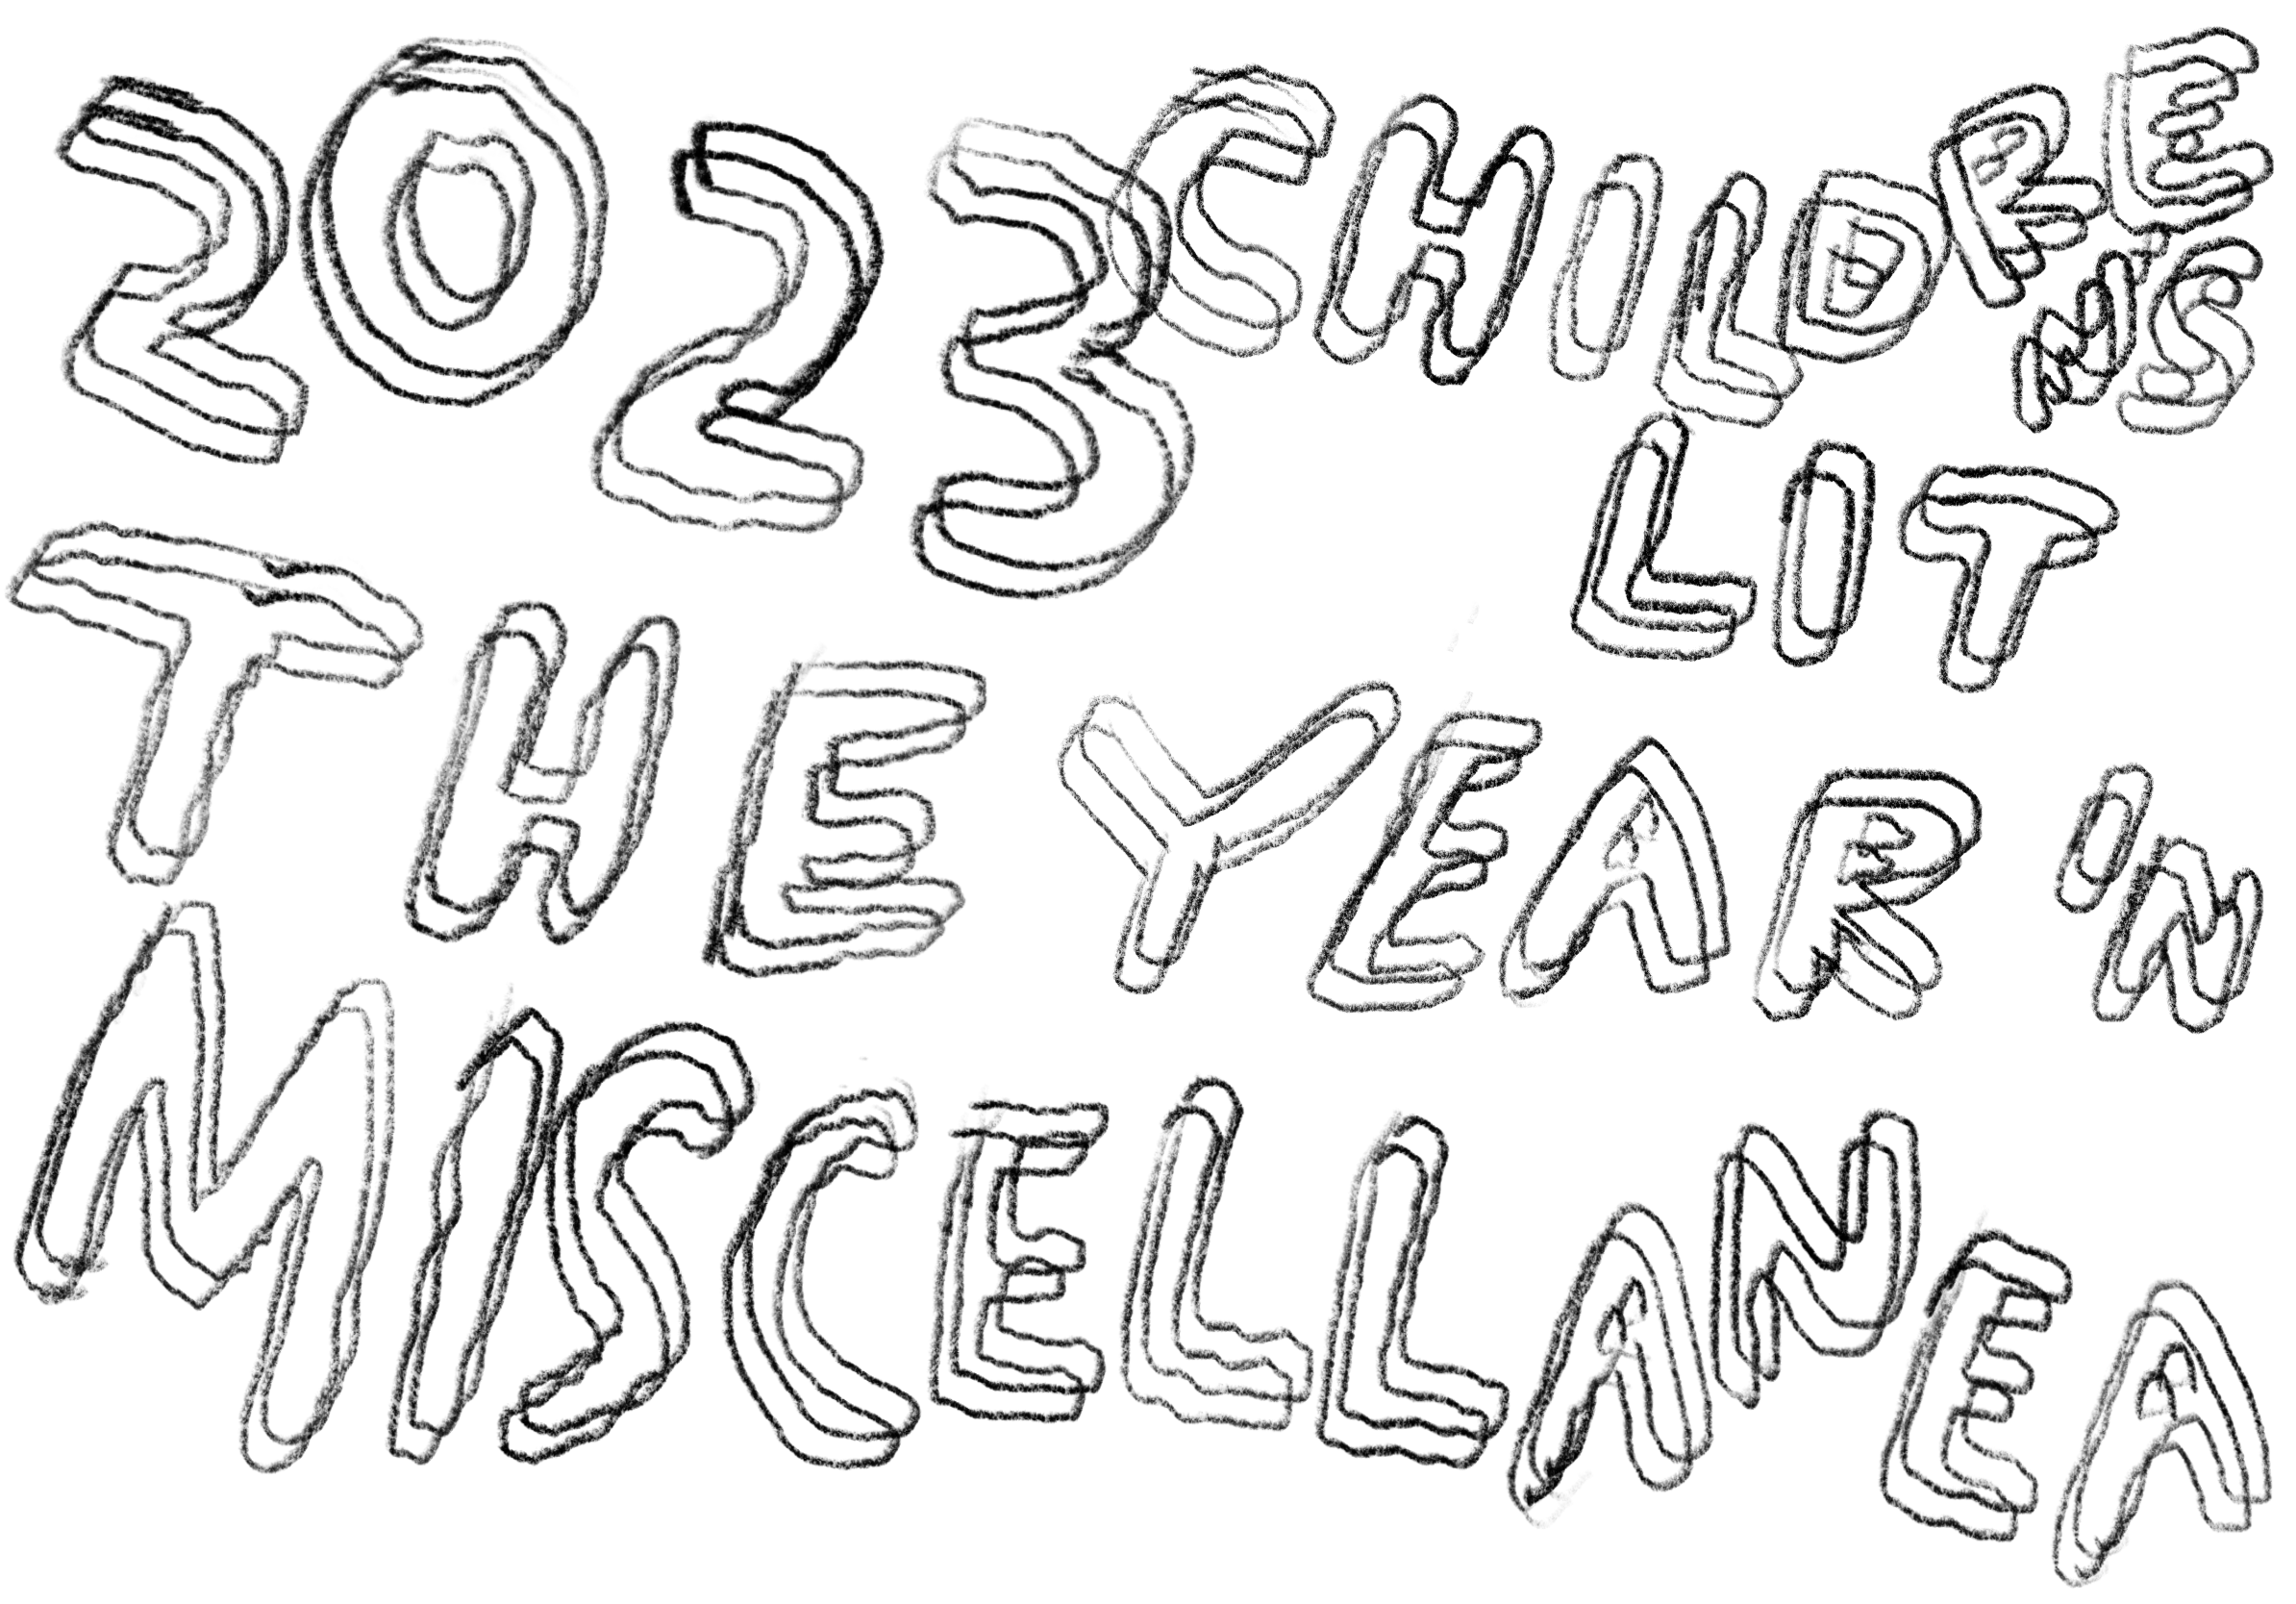 2023 CHILDRENS
LIT
THE YEAR IN
MISCELLANEA